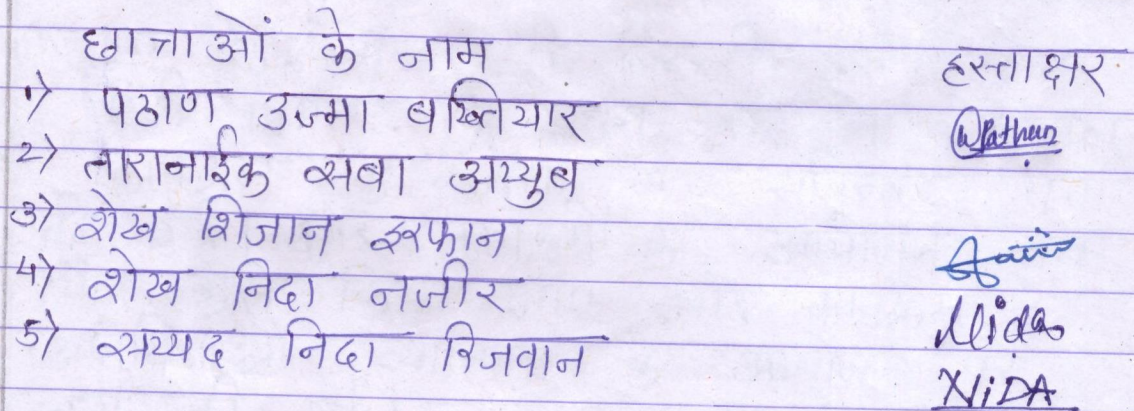 छात्राओं के नाम हस्ताक्षर
1) पठाण उज्मा बख्तियार Pathan
2) तारानाईक सबा अय्युब
3) शेख शिजान इरफान
4) शेख निदा नजीर Nida
5) सय्यद निदा रिजवान NiDA